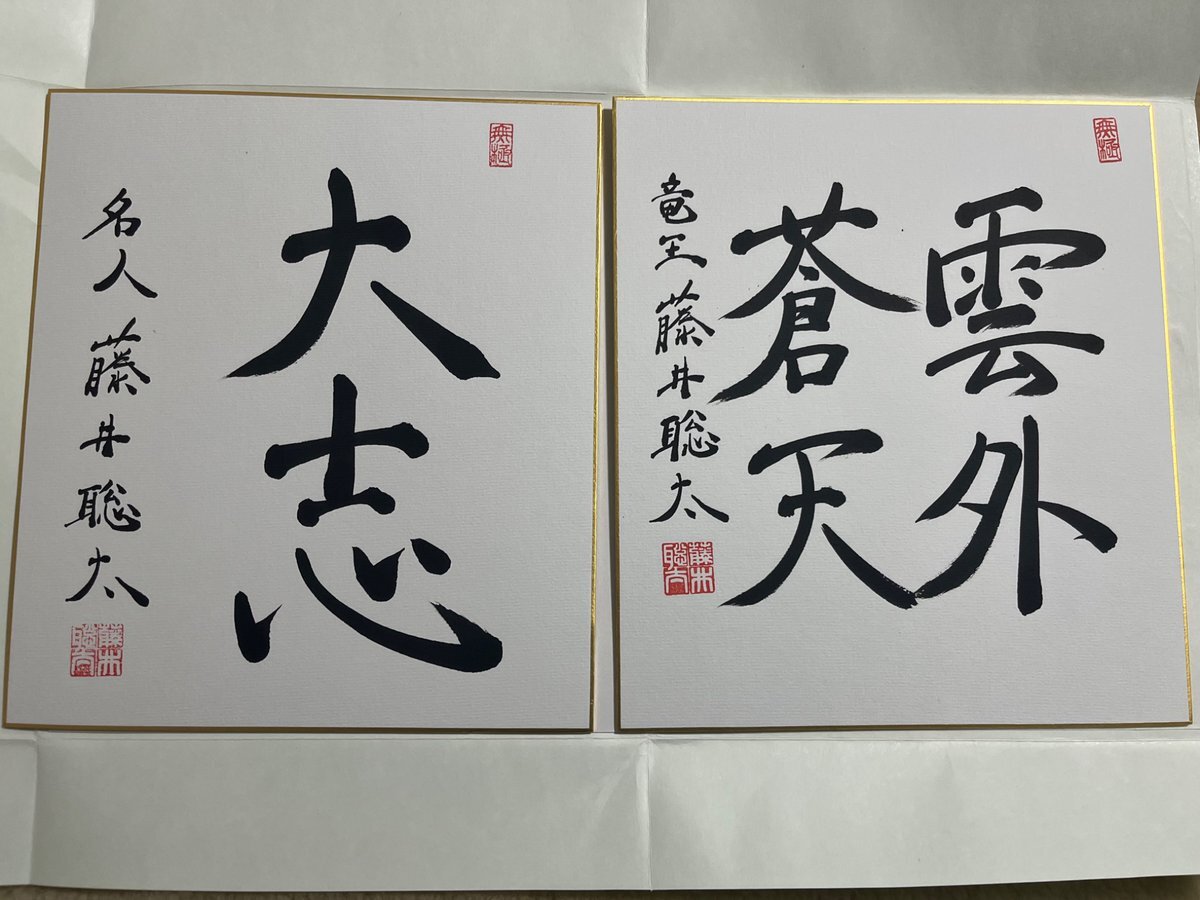 無極
雲外
蒼天
竜王 藤井聡太
藤井
聡太
無極
大志
名人 藤井聡太
藤井
聡太